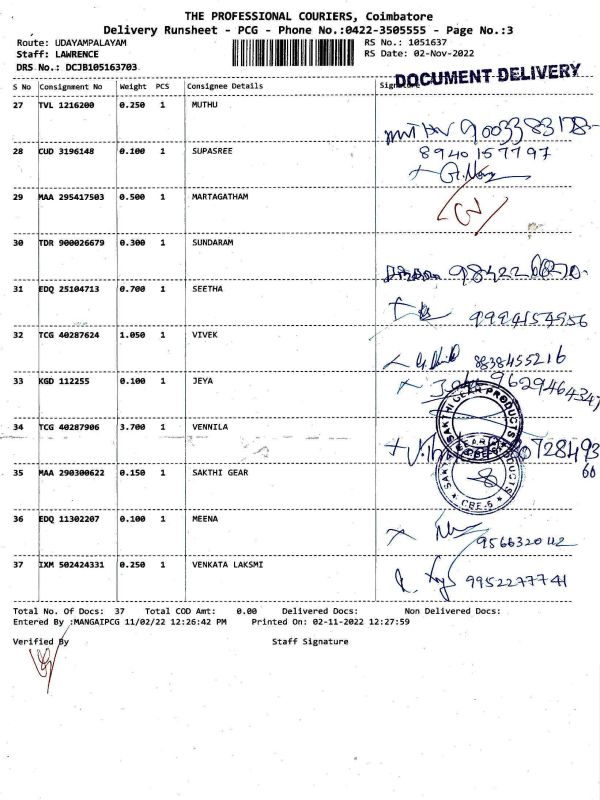 THE PROFESSIONAL COURIERS, Coimbatore
Delivery Runsheet - PCG - Phone No.:0422-3505555 - Page No.:3
Route: UDAYAMPALAYAM RS No.: 1051637
Staff: LAWRENCE RS Date: 02-Nov-2022
DRS No.: DCJB105163703
DOCUMENT DELIVERY
S No Consignment No Weight PCS Consignee Details Signature
27 TVL 1216200 0.250 1 MUTHU
9003383178
28 CUD 3196148 0.100 1 SUPASREE 8940157797
29 MAA 295417503 0.500 1 MARTAGATHAM
30 TDR 900026679 0.300 1 SUNDARAM
31 EDQ 25104713 0.700 1 SEETHA
9994154956
32 TCG 40287624 1.050 1 VIVEK
8838455216
33 KGD 112255 0.100 1 JEYA 9629464347
34 TCG 40287906 3.700 1 VENNILA
SAKTHI GEAR PRODUCTS
35 MAA 290300622 0.150 1 SAKTHI GEAR
CBE-6
36 EDQ 11302207 0.100 1 MEENA
9566320112
37 IXM 502424331 0.250 1 VENKATA LAKSMI
9952277741
Total No. Of Docs: 37 Total COD Amt: 0.00 Delivered Docs: Non Delivered Docs:
Entered By :MANGAIPCG 11/02/22 12:26:42 PM Printed On: 02-11-2022 12:27:59
Verified By Staff Signature